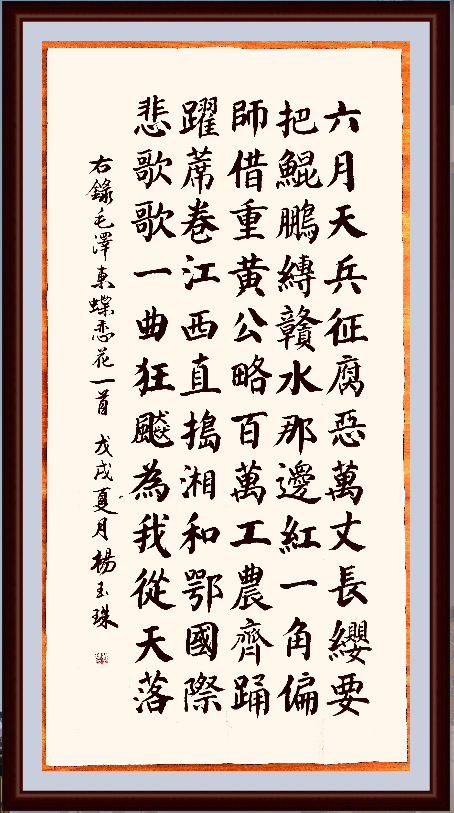 六月天兵征腐惡萬丈長纓要
把鯤鵬縛贛水那邊紅一角偏
師借重黃公略百萬工農齊踊
躍蓆卷江西直搗湘和鄂國際
悲歌歌一曲狂飈為我從天落
右錄毛澤東蝶恋花一首 戊戌夏月楊玉珠